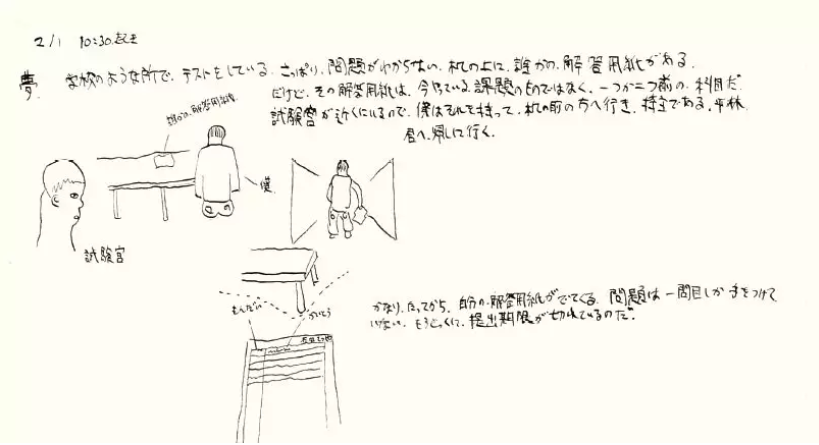 2/1 10:30.起き
夢. 学校のような所で、テストをしている. さっぱり、問題がわからない. 机の上に、誰かの、解答用紙がある.
だけど、その解答用紙は、今やっている、課題のものではなく、一つか二つ前の、科目だ.
試験官が近くにいるので、僕はそれを持って、机の前の方へ行き、持主である、平林
君へ、帰しに行く.
誰かの、解答用紙
僕
試験官
もんだい
かいとう
かなり、たってから、自分の、解答用紙がでてくる. 問題は一問目しか手をつけて
いない. もうとっくに、提出期限が切れているのだ.